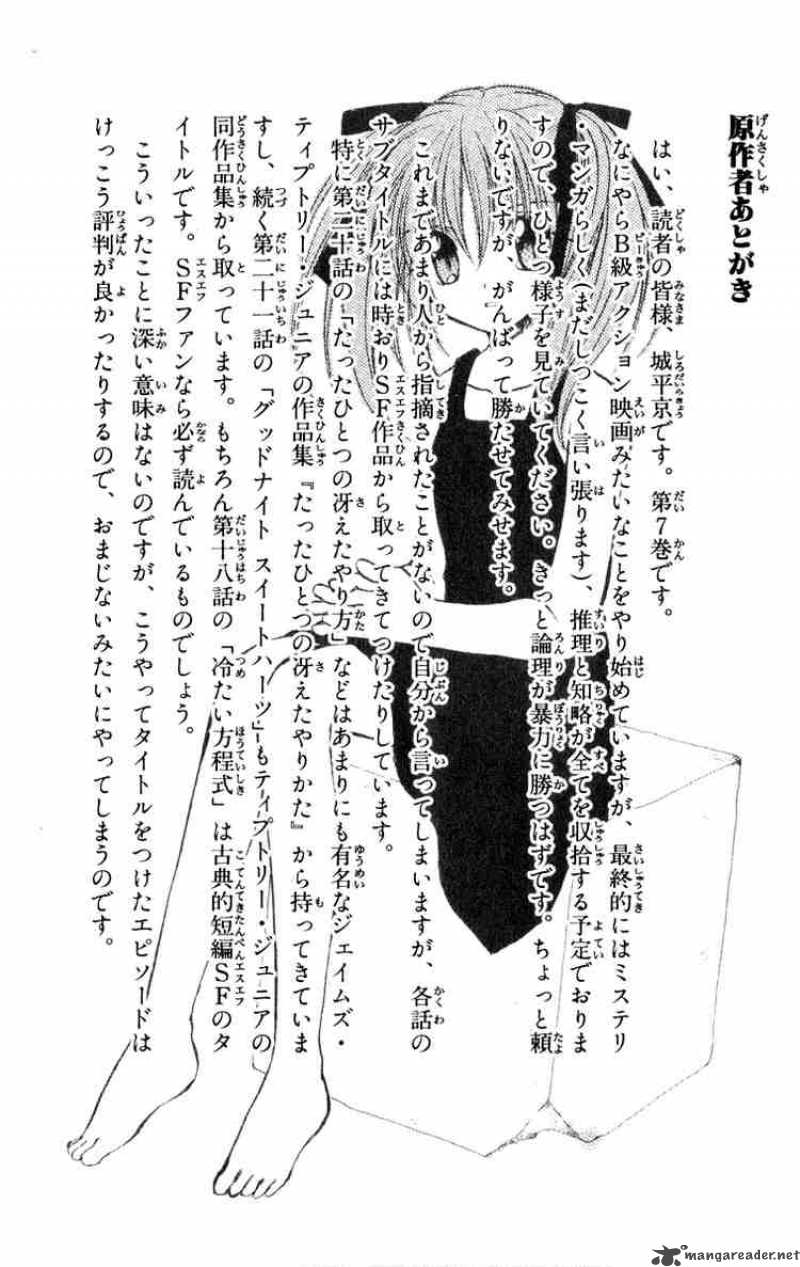 原作者あとがき
はい、読者の皆様、城平京です。第7巻です。
なにやらB級アクション映画みたいなことをやり始めていますが、最終的にはミステリ
・マンガらしく(まだしつこく言い張ります)、推理と知略が全てを収拾する予定でおりま
すので、ひとつ様子を見ていてください。きっと論理が暴力に勝つはずです。ちょっと頼
りないですが、がんばって勝たせてみせます。
これまであまり人から指摘されたことがないので自分から言ってしまいますが、各話の
サブタイトルには時おりSF作品から取ってきてつけたりしています。
特に第二十話の「たったひとつの冴えたやり方」などはあまりにも有名なジェイムズ・
ティプトリー・ジュニアの作品集『たったひとつの冴えたやりかた』から持ってきていま
すし、続く第二十一話の「グッドナイト スイートハーツ」もティプトリー・ジュニアの
同作品集から取っています。もちろん第十八話の「冷たい方程式」は古典的短編SFのタ
イトルです。SFファンなら必ず読んでいるものでしょう。
こういったことに深い意味はないのですが、こうやってタイトルをつけたエピソードは
けっこう評判が良かったりするので、おまじないみたいにやってしまうのです。
mangareader.net